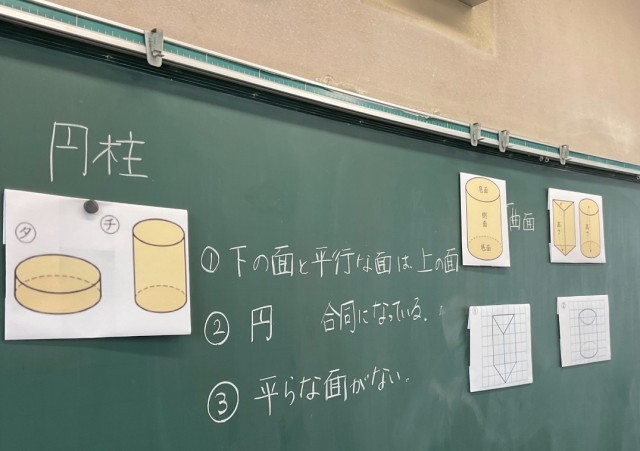 円柱
タ
チ
①下の面と平行な面は、上の面
②円 合同になっている。
③平らな面がない。
底面
側面
底面
曲面